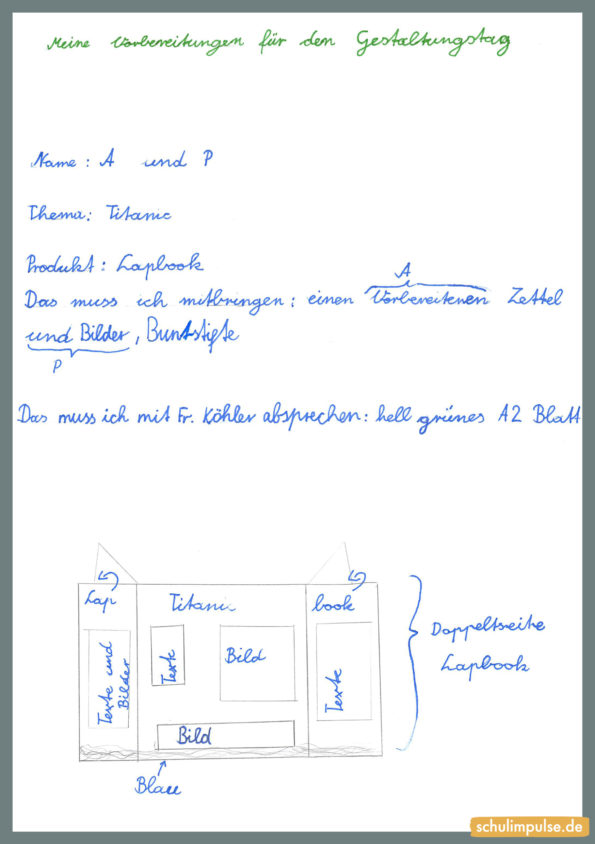 Meine Vorbereitungen für den Gestaltungstag
Name: A und P
Thema: Titanic
Produkt: Lapbook
A
Das muss ich mitbringen: einen Vorbereitenen Zettel
und Bilder, Buntstifte
P
Das muss ich mit Fr. Köhler absprechen: hell grünes A2 Blatt
Lap Titanic book
Texte und
Bilder
Text
Bild
Texte
Bild
Doppeltseite
Lapbook
Blau
schulimpulse.de